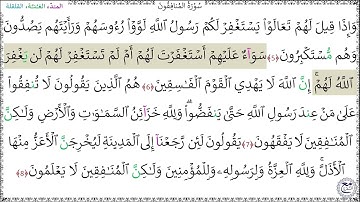 سُورَةُ المُنَافِقُونَ
المدّ، الغنّة، القلقلة
وَإِذَا قِيلَ لَهُمْ تَعَالَوْا۟ يَسْتَغْفِرْ لَكُمْ رَسُولُ اللَّهِ لَوَّوْا۟ رُءُوسَهُمْ وَرَأَيْتَهُمْ يَصُدُّونَ
وَهُم مُّسْتَكْبِرُونَ ﴿5﴾ سَوَآءٌ عَلَيْهِمْ أَسْتَغْفَرْتَ لَهُمْ أَمْ لَمْ تَسْتَغْفِرْ لَهُمْ لَن يَغْفِرَ
اللَّهُ لَهُمْ ۚ إِنَّ اللَّهَ لَا يَهْدِي الْقَوْمَ الْفَاسِقِينَ ﴿6﴾ هُمُ الَّذِينَ يَقُولُونَ لَا تُنفِقُوا۟
عَلَىٰ مَنْ عِندَ رَسُولِ اللَّهِ حَتَّىٰ يَنفَضُّوا۟ ۗ وَلِلَّهِ خَزَآئِنُ السَّمَـٰوَٰتِ وَالْأَرْضِ وَلَـٰكِنَّ
الْمُنَافِقِينَ لَا يَفْقَهُونَ ﴿7﴾ يَقُولُونَ لَئِن رَّجَعْنَآ إِلَى الْمَدِينَةِ لَيُخْرِجَنَّ الْأَعَزُّ مِنْهَا
الْأَذَلَّ ۚ وَلِلَّهِ الْعِزَّةُ وَلِرَسُولِهِۦ وَلِلْمُؤْمِنِينَ وَلَـٰكِنَّ الْمُنَافِقِينَ لَا يَعْلَمُونَ ﴿8﴾